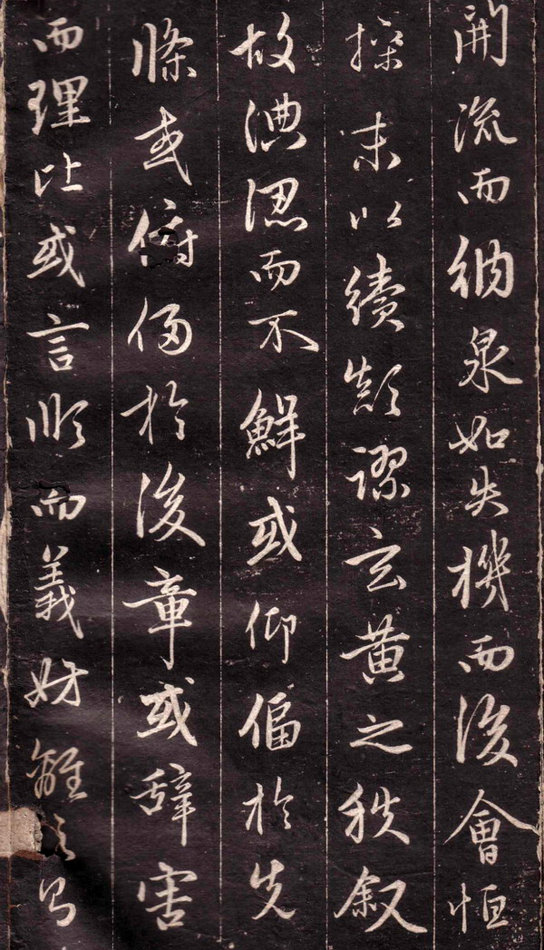 開流而納泉如失機而後會恒
操末以續顛謬玄黃之秩叙
故淟涊而不鮮或仰偪於先
條或俯侵於後章或辭害
而理比或言順而義妨離之